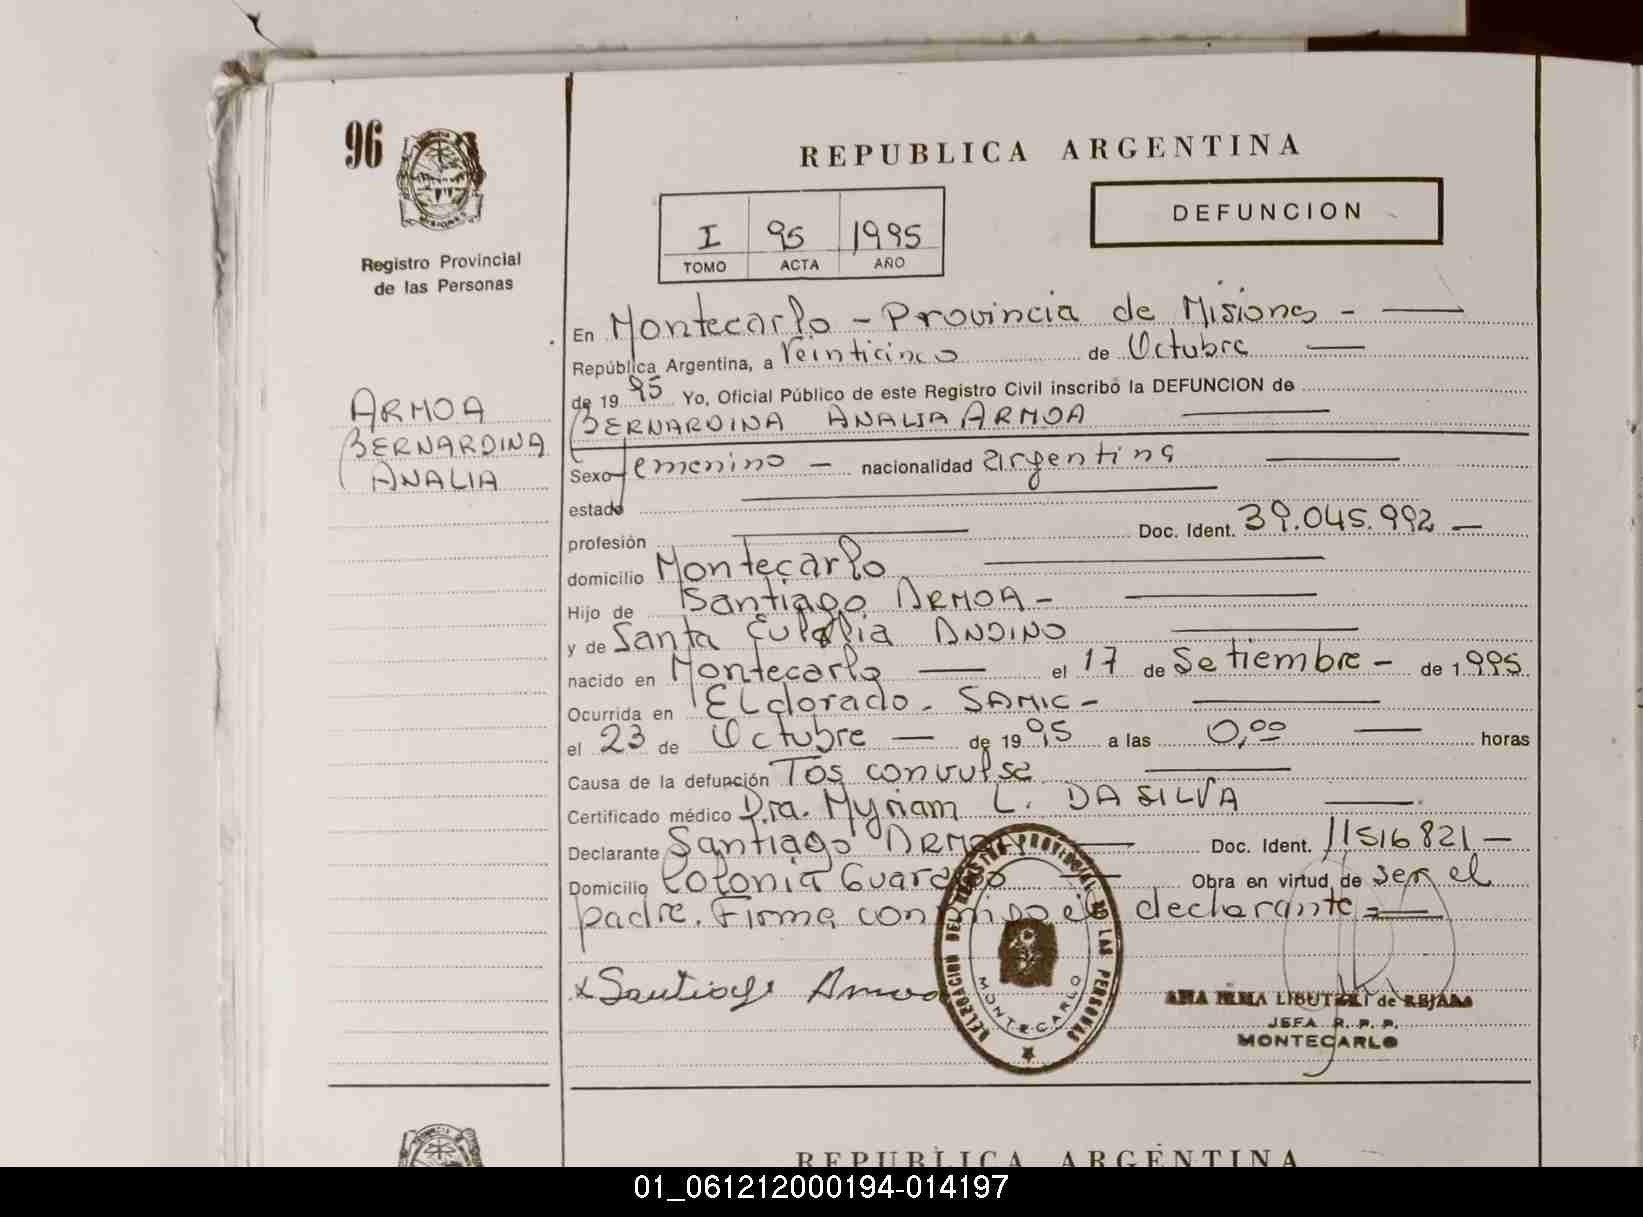 96
REPUBLICA ARGENTINA
I 95 1995
TOMO ACTA AÑO
DEFUNCION
Registro Provincial
de las Personas
ARMOA
BERNARDINA
ANALIA
En Montecarlo - Provincia de Misiones -
República Argentina, a Veinticinco de Octubre
de 19 95 Yo, Oficial Público de este Registro Civil inscribo la DEFUNCION de
BERNARDINA ANALIA ARMOA
Sexo femenino - nacionalidad argentina
estado
profesión Doc. Ident. 39.045.992 -
domicilio Montecarlo
Hijo de Santiago ARMOA -
y de Santa Eulalia ANDINO
nacido en Montecarlo el 17 de Setiembre - de 1.995.
Ocurrida en ELdorado - SAMIC -
el 23 de Octubre - de 19 95 a las 0,00 horas
Causa de la defunción Tos convulsa
Certificado médico Dra. Myriam L. DA SILVA
Declarante Santiago ARMOA Doc. Ident. 11516821 -
Domicilio Colonia Guaraypo Obra en virtud de ser el
padre. Firma conmigo el declarante =
x Santiago Armoa
DELEGACION DEL REGISTRO PROVINCIAL DE LAS PERSONAS
MONTECARLO
ANA IRMA de
JEFA R. P. P.
MONTECARLO
REPUBLICA ARGENTINA
01_061212000194-014197